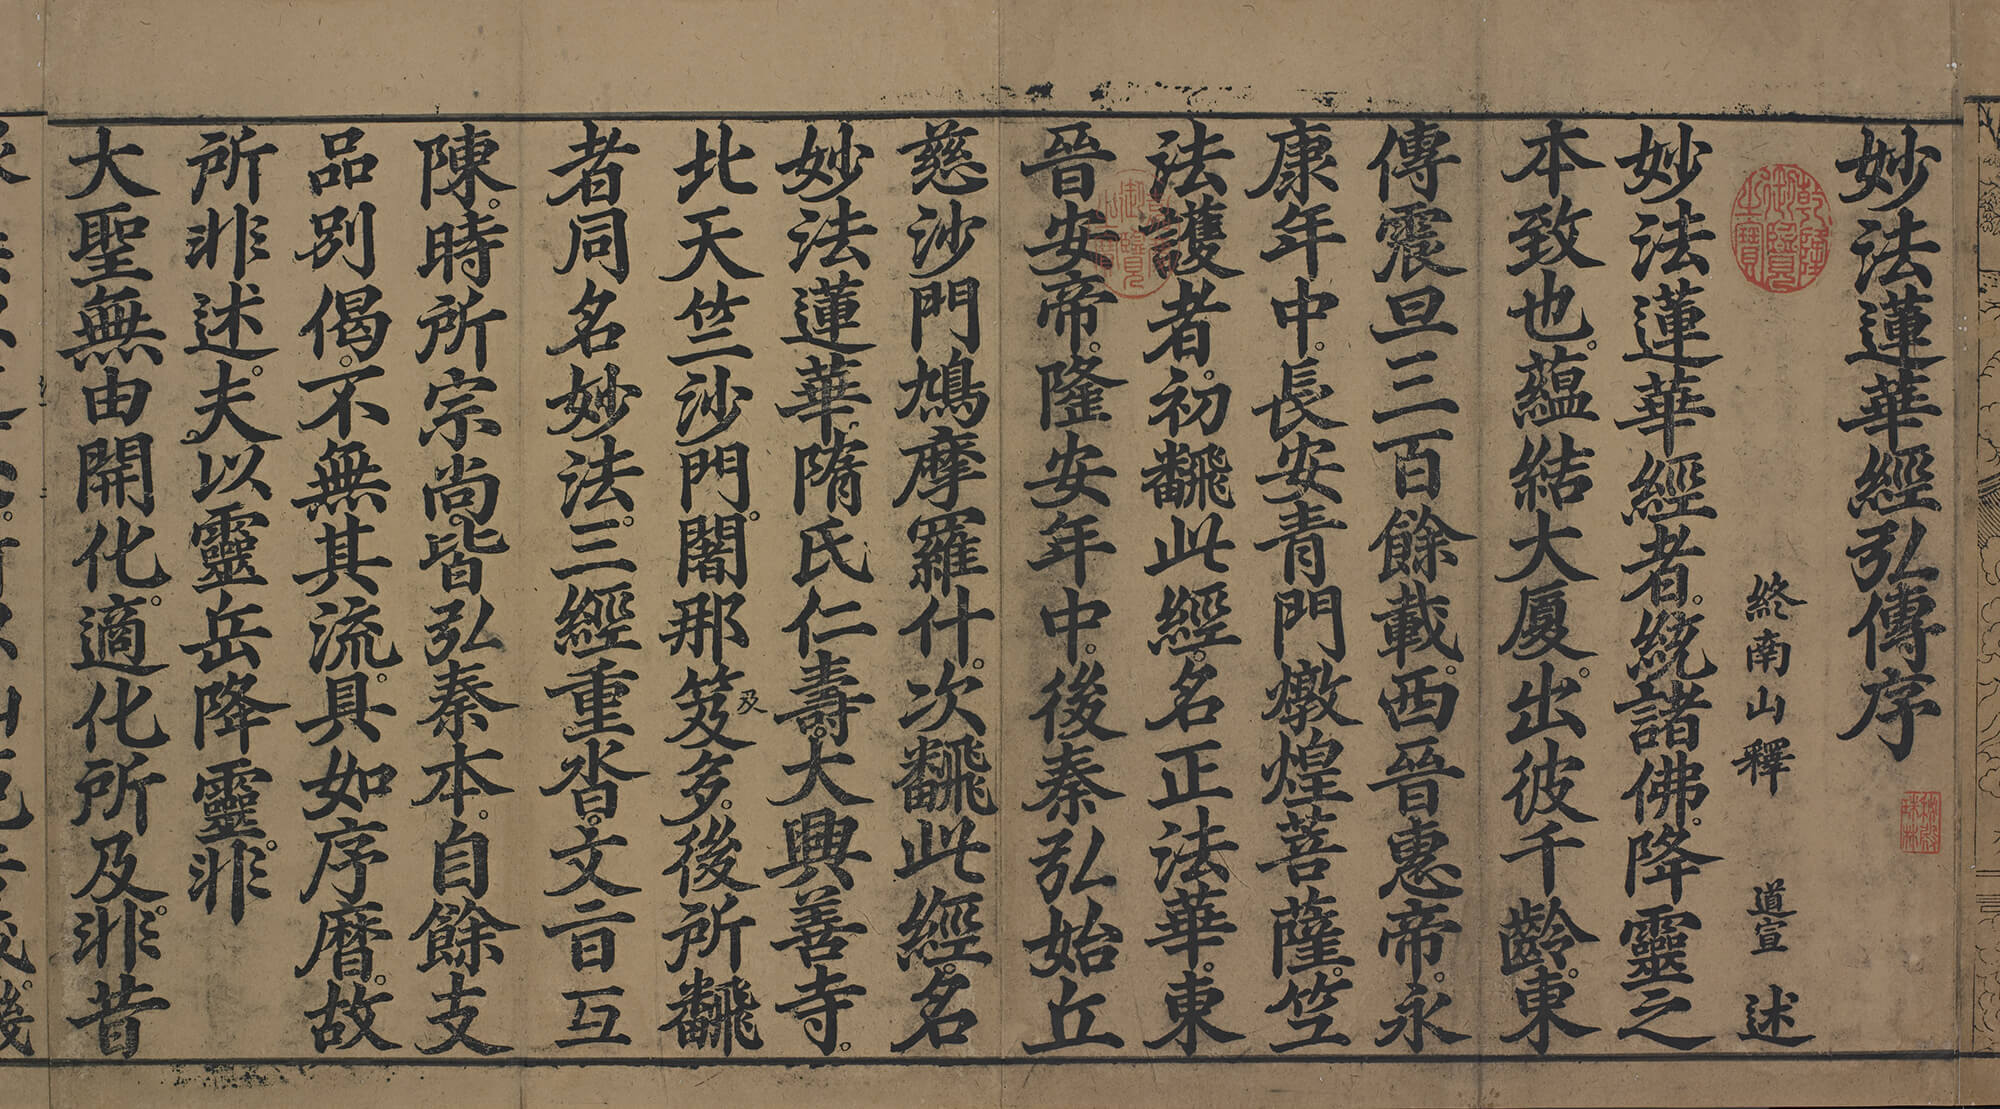 妙法蓮華經弘傳序
終南山釋 道宣 述
妙法蓮華經者。統諸佛。降靈之
本致也。蘊結大厦。出彼千齡。東
傳震旦三百餘載。西晉惠帝。永
康年中。長安青門燉煌菩薩。竺
法護者。初飜此經。名正法華。東
晉安帝。隆安年中。後秦弘始丘
慈沙門鳩摩羅什。次飜此經。名
妙法蓮華。隋氏仁壽。大興善寺。
北天竺沙門。闍那笈及多。後所飜
者同名妙法。三經重沓。文旨互
陳。時所宗尚。皆弘秦本。自餘支
品別偈。不無其流。具如序曆。故
所非述。夫。以靈岳降靈。非
大聖無由開化。適化所及。非昔
乾隆御覽之寶